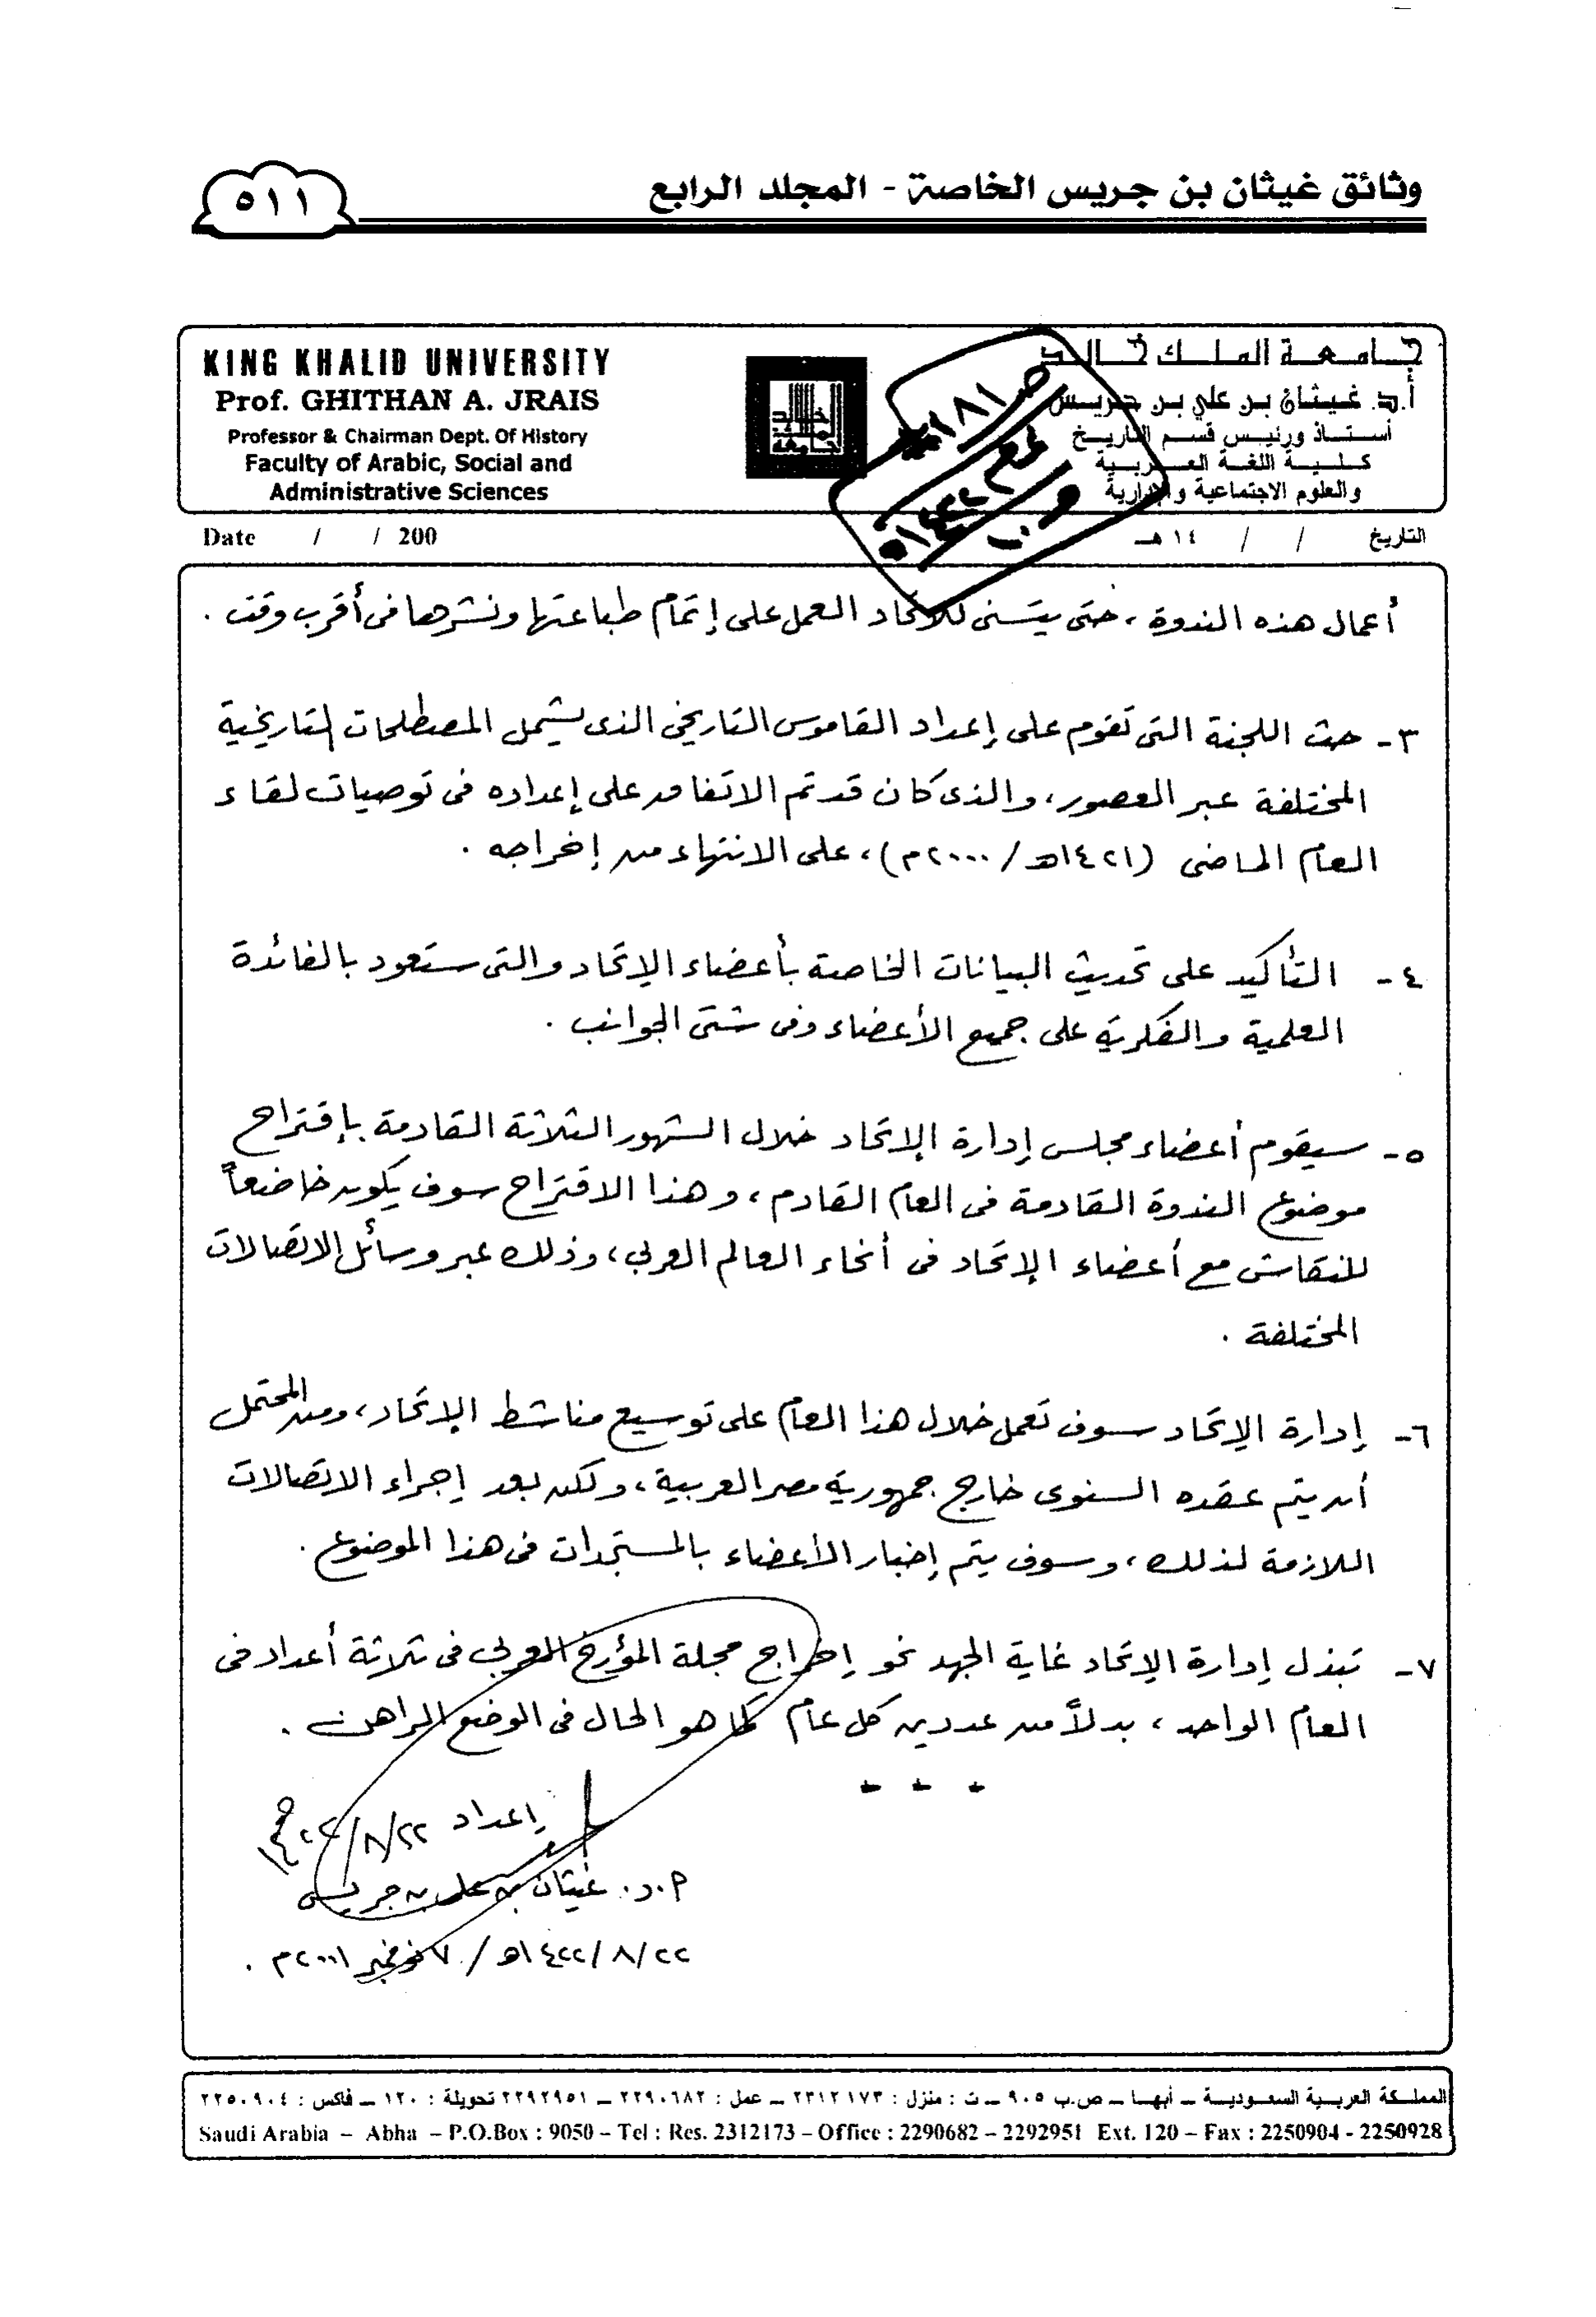 وثائق غيثان بن جريس الخاصة - المجلد الرابع
٥١١
KING KHALID UNIVERSITY
Prof. GHITHAN A. JRAIS
Professor & Chairman Dept. Of History
Faculty of Arabic, Social and
Administrative Sciences
جامعة الملك خالد
أ.د. غيثان بن علي بن جريس
أستاذ ورئيس قسم التاريخ
كلية اللغة العربية
والعلوم الاجتماعية والإدارية
Date / / 200
التاريخ / / ١٤هـ
أعمال هذه الندوة، حتى يتسنى للاتحاد العمل على إتمام طباعتها ونشرها فى أقرب وقت .
٣- حث اللجنة التى تقوم على إعداد القاموس التاريخى الذى يشمل المصطلحات التاريخية
المختلفة عبر العصور، والذى كان قد تم الاتفاق على إعداده فى توصيات لقاء
العام الماضى (١٤٢١هـ/٢٠٠٠م)، على الانتهاء من إخراجه .
٤- التأكيد على تحديث البيانات الخاصة بأعضاء الإتحاد والتى ستعود بالفائدة
العلمية والفكرية على جميع الأعضاء وفى شتى الجوانب .
٥- سيقوم أعضاء مجلس إدارة الإتحاد خلال الشهور الثلاثة القادمة بإقتراح
موضوع الندوة القادمة فى العام القادم، وهذا الاقتراح سوف يكون خاضعاً
للنقاش مع أعضاء الإتحاد فى أنحاء العالم العربى، وذلك عبر وسائل الاتصالات
المختلفة .
٦- إدارة الإتحاد سوف تعمل خلال هذا العام على توسيع مناشط الإتحاد، ومن المحتمل
أن يتم عقده السنوى خارج جمهورية مصر العربية، ولكن بعد إجراء الاتصالات
اللازمة لذلك، وسوف يتم إخبار الأعضاء بالمستجدات فى هذا الموضوع .
٧- تبذل إدارة الإتحاد غاية الجهد نحو إخراج مجلة المؤرخ العربى فى ثلاثة أعداد فى
العام الواحد، بدلاً من عددين كل عام كما هو الحال فى الوضع الراهن .
إعداد
أ.د. غيثان بن على بن جريس
٢٢/٨/١٤٢٢هـ/ ٧ نوفمبر ٢٠٠١م .
المملكة العربية السعودية – أبها – ص.ب ٩٠٥ – ت : منزل : ٢٣١٢١٧٣ – عمل : ٢٢٩٠٦٨٢ – ٢٢٩٢٩٥١ تحويلة : ١٢٠ – فاكس : ٢٢٥٠٩٠٤
Saudi Arabia – Abha – P.O.Box : 9050 – Tel : Res. 2312173 – Office : 2290682 – 2292951 Ext. 120 – Fax : 2250904 - 2250928